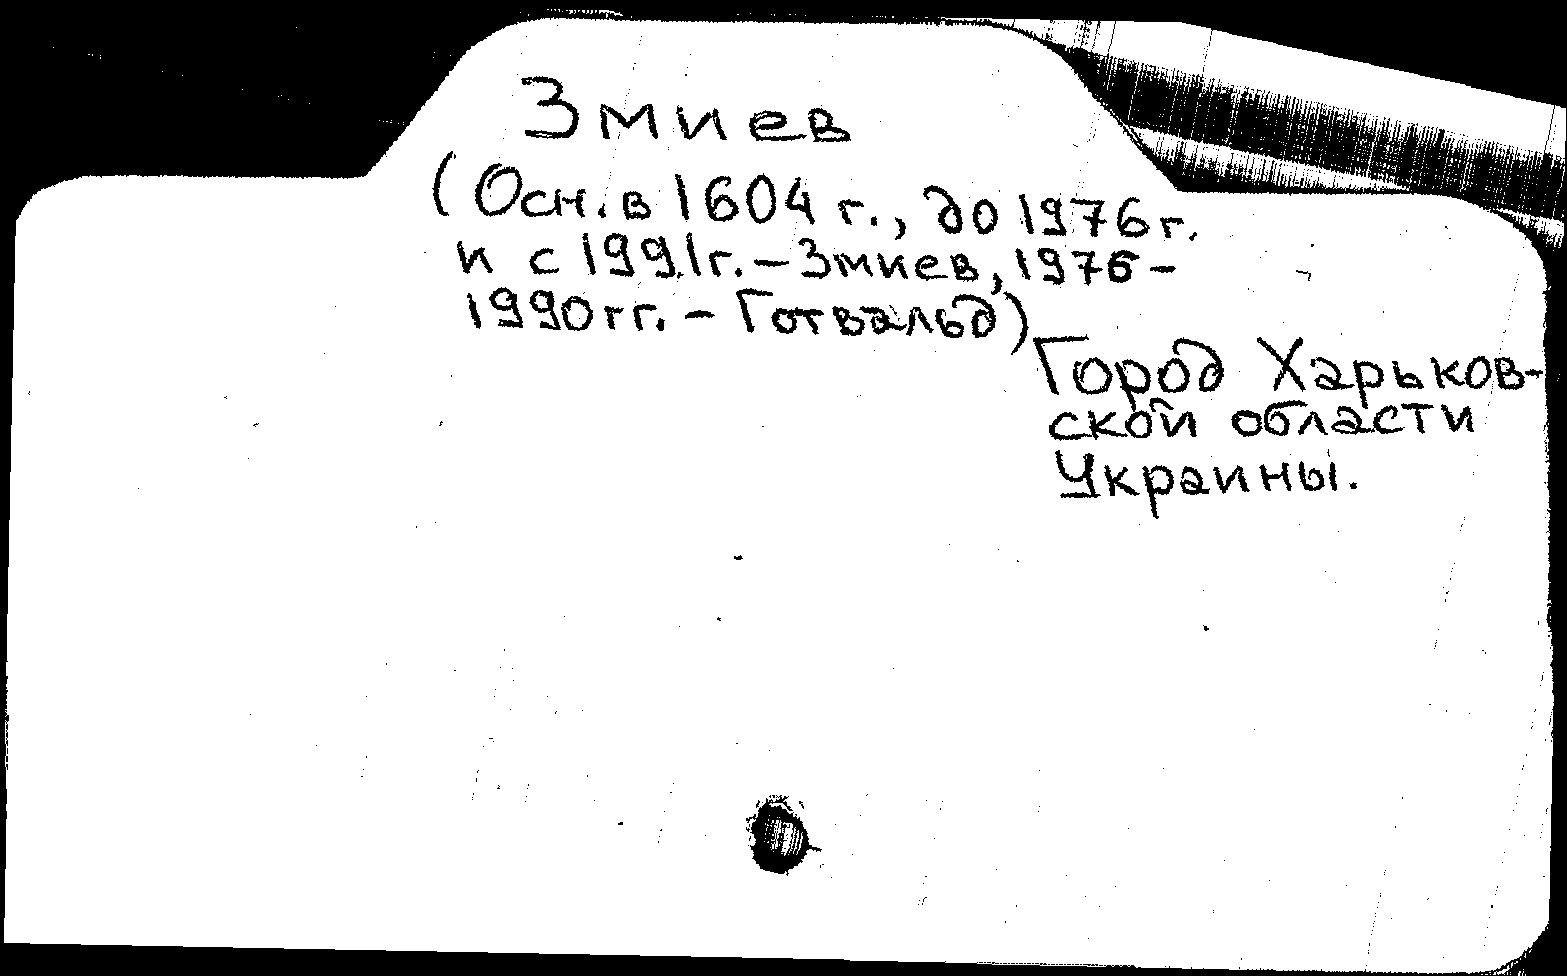 Змиев
(Осн. в 1604 г., до 1976 г.
и с 1991 г. – Змиев, 1976 –
1990 гг. – Готвальд)
Город Харьков-
ской области
Украины.